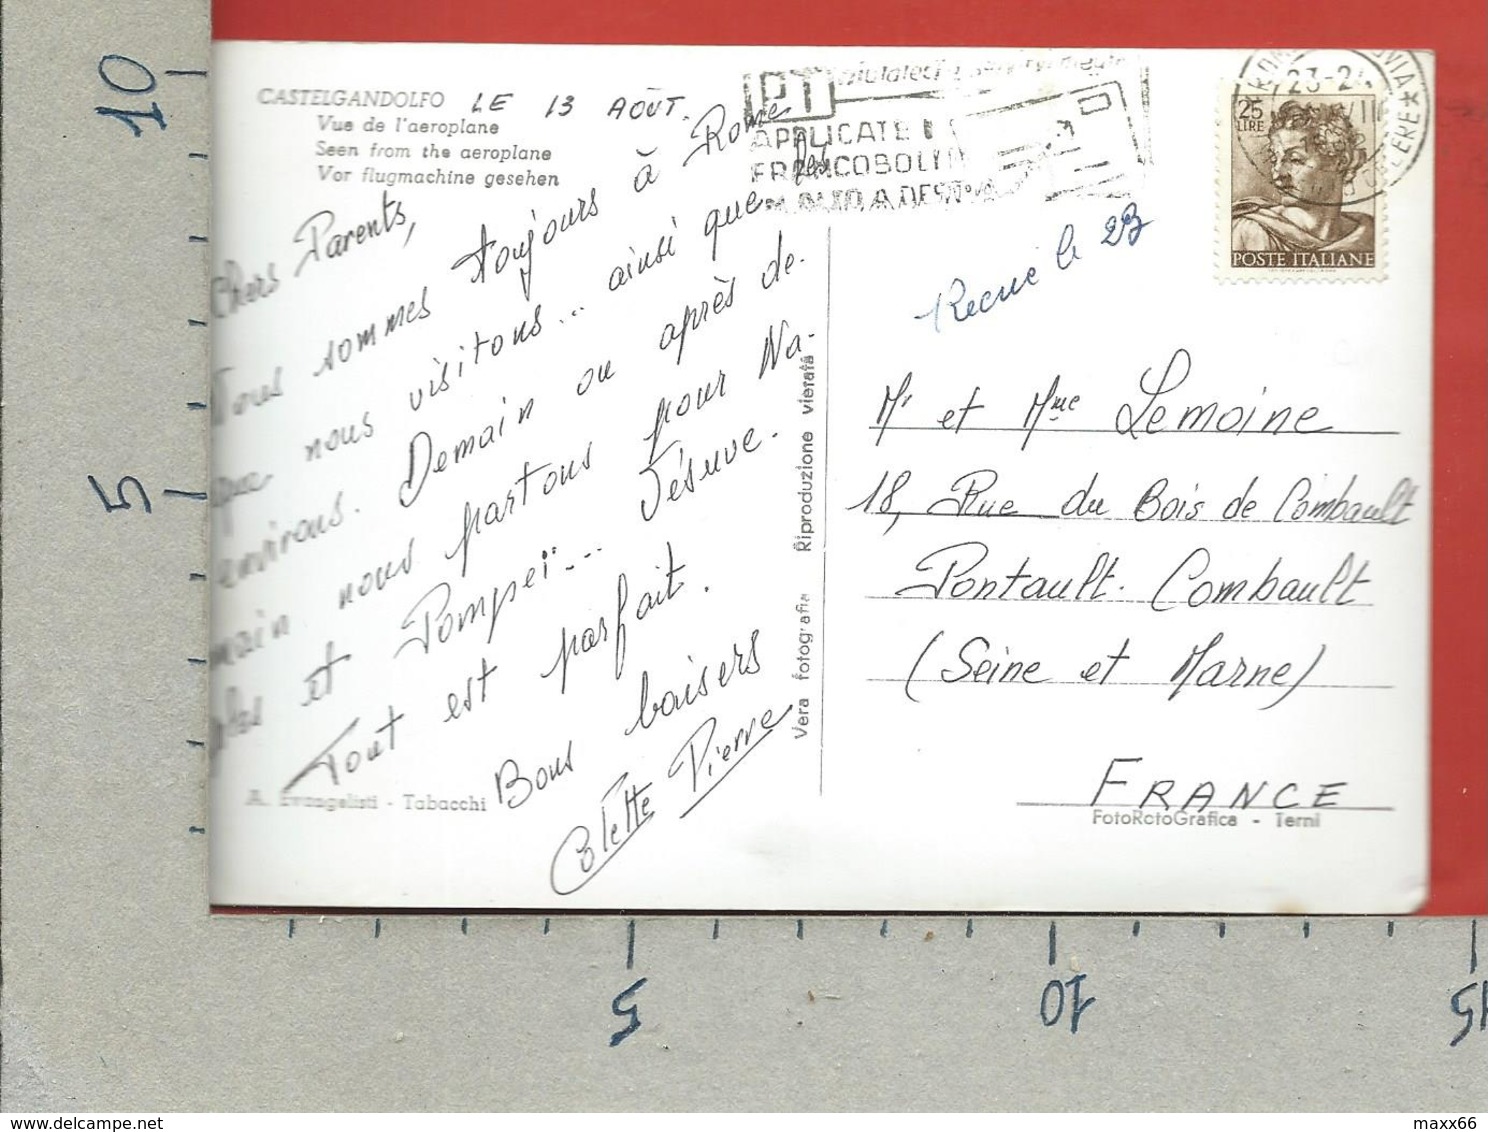 CASTELGANDOLFO
Vue de l'aeroplane
Seen from the aeroplane
Vor flugmachine gesehen
LE 13 AOÛT.
Chers Parents,
Nous sommes toujours à Rome
que nous visitons... ainsi que les
environs. Demain ou après de-
main nous partons pour Na-
ples et Pompeï... Vésuve.
Tout est parfait.
Bons baisers
Colette Pierre
A. Evangelisti - Tabacchi
Vera fotografia Riproduzione vietata
PT
APPLICATE I
FRANCOBOLLI
IN ALTO A DESTRA
23-24
25
LIRE
POSTE ITALIANE
Recue le 23
Mr et Mme Lemoine
18, Rue du Bois de Combault
Pontault-Combault
(Seine et Marne)
FRANCE
FotoRotoGrafica - Terni
10
5
5
10
15
maxx66